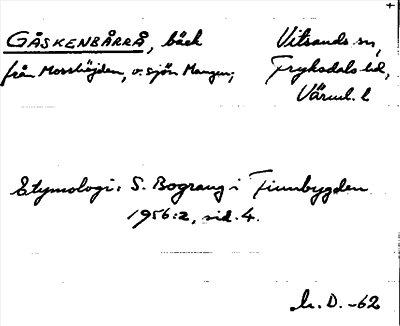 GÅSKENBÅRRÅ, bäck
Vitsands sn,
från Mosshöjden, v. sjön Mangen;
Fryksdals hd,
Värml. l
Etymologi: S. Bograng i Finnbygden
1956:2, sid. 4.
D. -62